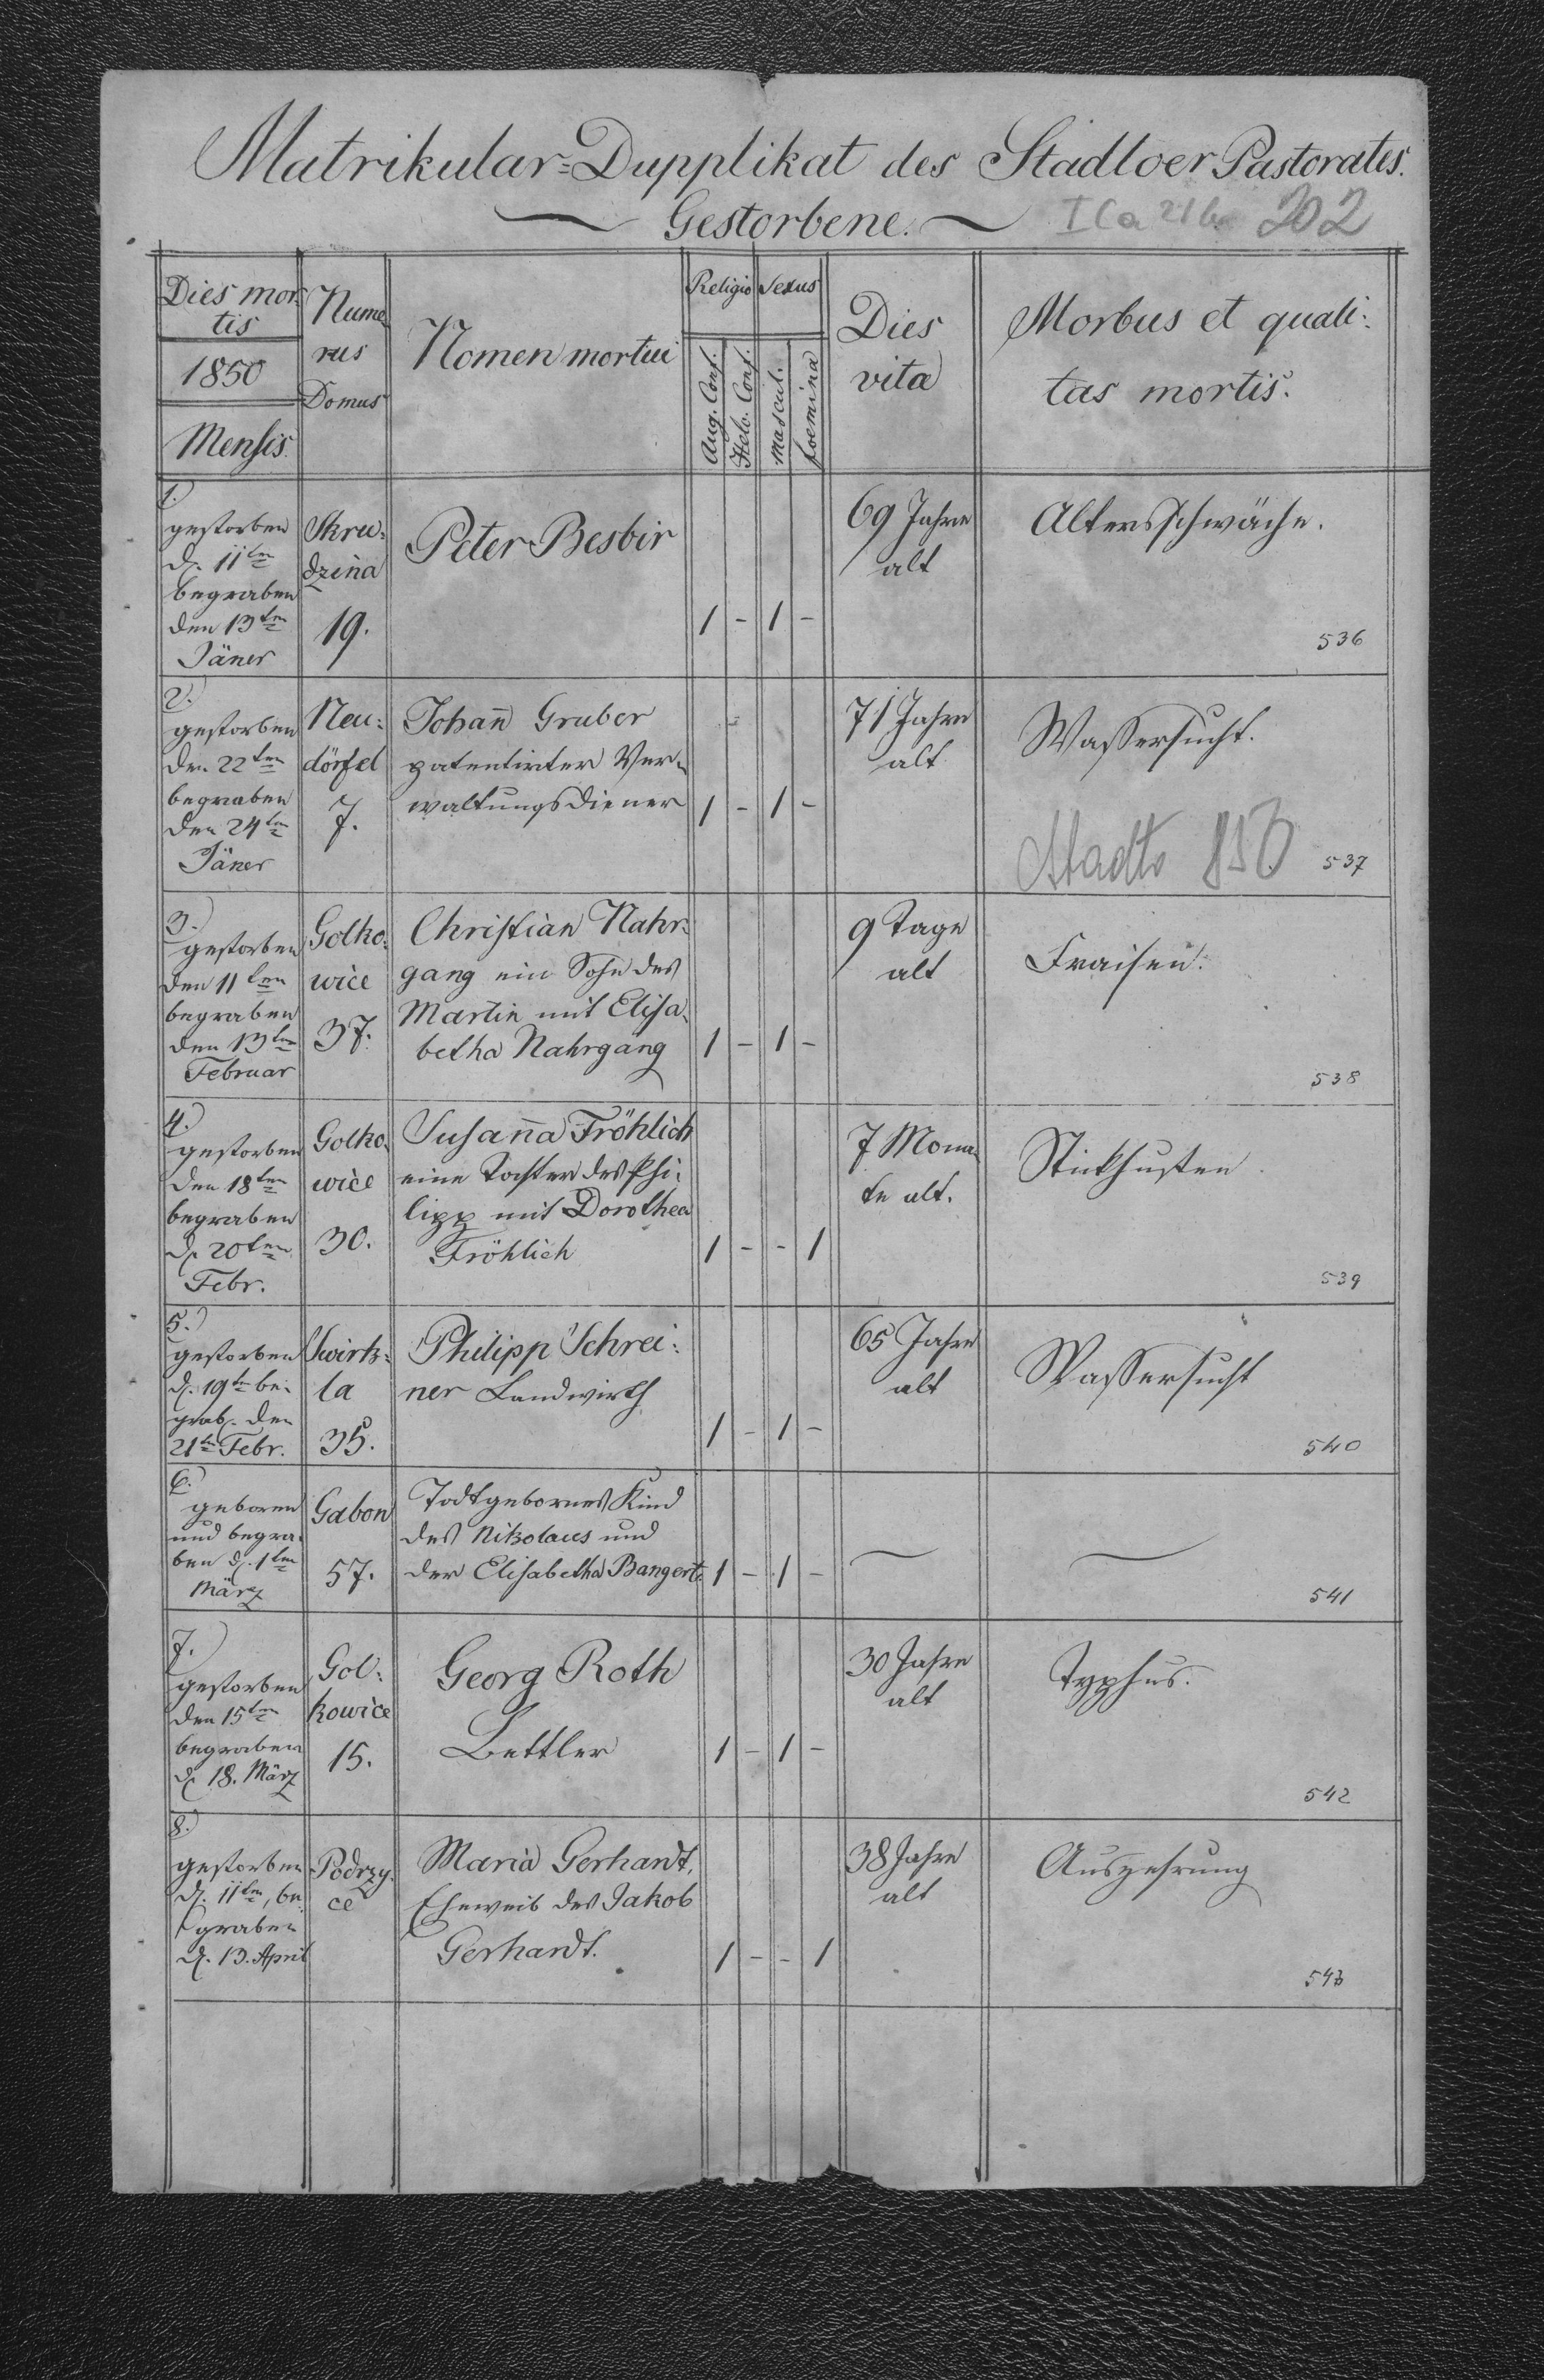 Matrikular=Dupplikat des Stadloer Pastorates.
Gestorbene.
202
Dies mor-
tis
1850
Mensis.
Nume
rus
Domus
Nomen mortui
Religio
Aug. Conf.
Helv. Conf.
Sexus
Mascul.
foemina
Dies
vita
Morbus et quali:
tas mortis.
1.)
gestorben
d. 11ten
begraben
den 13ten
Jäner
Skru:
dzina
19.
Peter Besbir
1 - 1 -
69 Jahre
alt
Altersschwäche.
536
2.)
gestorben
den 22ten
begraben
den 24ten
Jäner
Neu:
dörfel
7.
Johan̄ Gruber
patentirter Ver-
waltungsdiener
1 - 1 -
71 Jahre
alt
Wassersucht.
Stadlo 850
537
3.)
gestorben
den 11ten
begraben
den 13ten
Februar
Golko:
wice
37.
Christian Nahr:
gang ein Sohn des
Martin mit Elisa-
betha Nahrgang
1 - 1 -
9 Tage
alt
Fraisen.
538
4.)
gestorben
den 18ten
begraben
d. 20ten
Febr.
Golko-
wice
30.
Susan̄a Fröhlich
eine Tochter des Phi:
lipp mit Dorothea
Fröhlich
1 - - 1
7 Mona-
te alt.
Stickhusten.
539
5.)
gestorben
d. 19ten be-
grab. den
21ten Febr.
Swirk-
la
35.
Philipp Schrei:
ner Landwirth
1 - 1 -
65 Jahre
alt
Wassersucht
540
6.)
geboren
und begra-
ben d. 1ten
März
Gabon
57.
Todtgebornes Kind
des Nikolaus und
der Elisabetha Bangert.
1 - 1 -
541
7.)
gestorben
den 15ten
begraben
d. 18. März
Gol:
kowice
15.
Georg Roth
Bettler
1 - 1 -
30 Jahre
alt
Typhus.
542
8.)
gestorben
d. 11ten, be
graben
d. 13. April
Podrzy-
ce
Maria Gerhardt,
Eheweib des Jakob
Gerhardt.
1 - - 1
38 Jahre
alt
Auszehrung
543